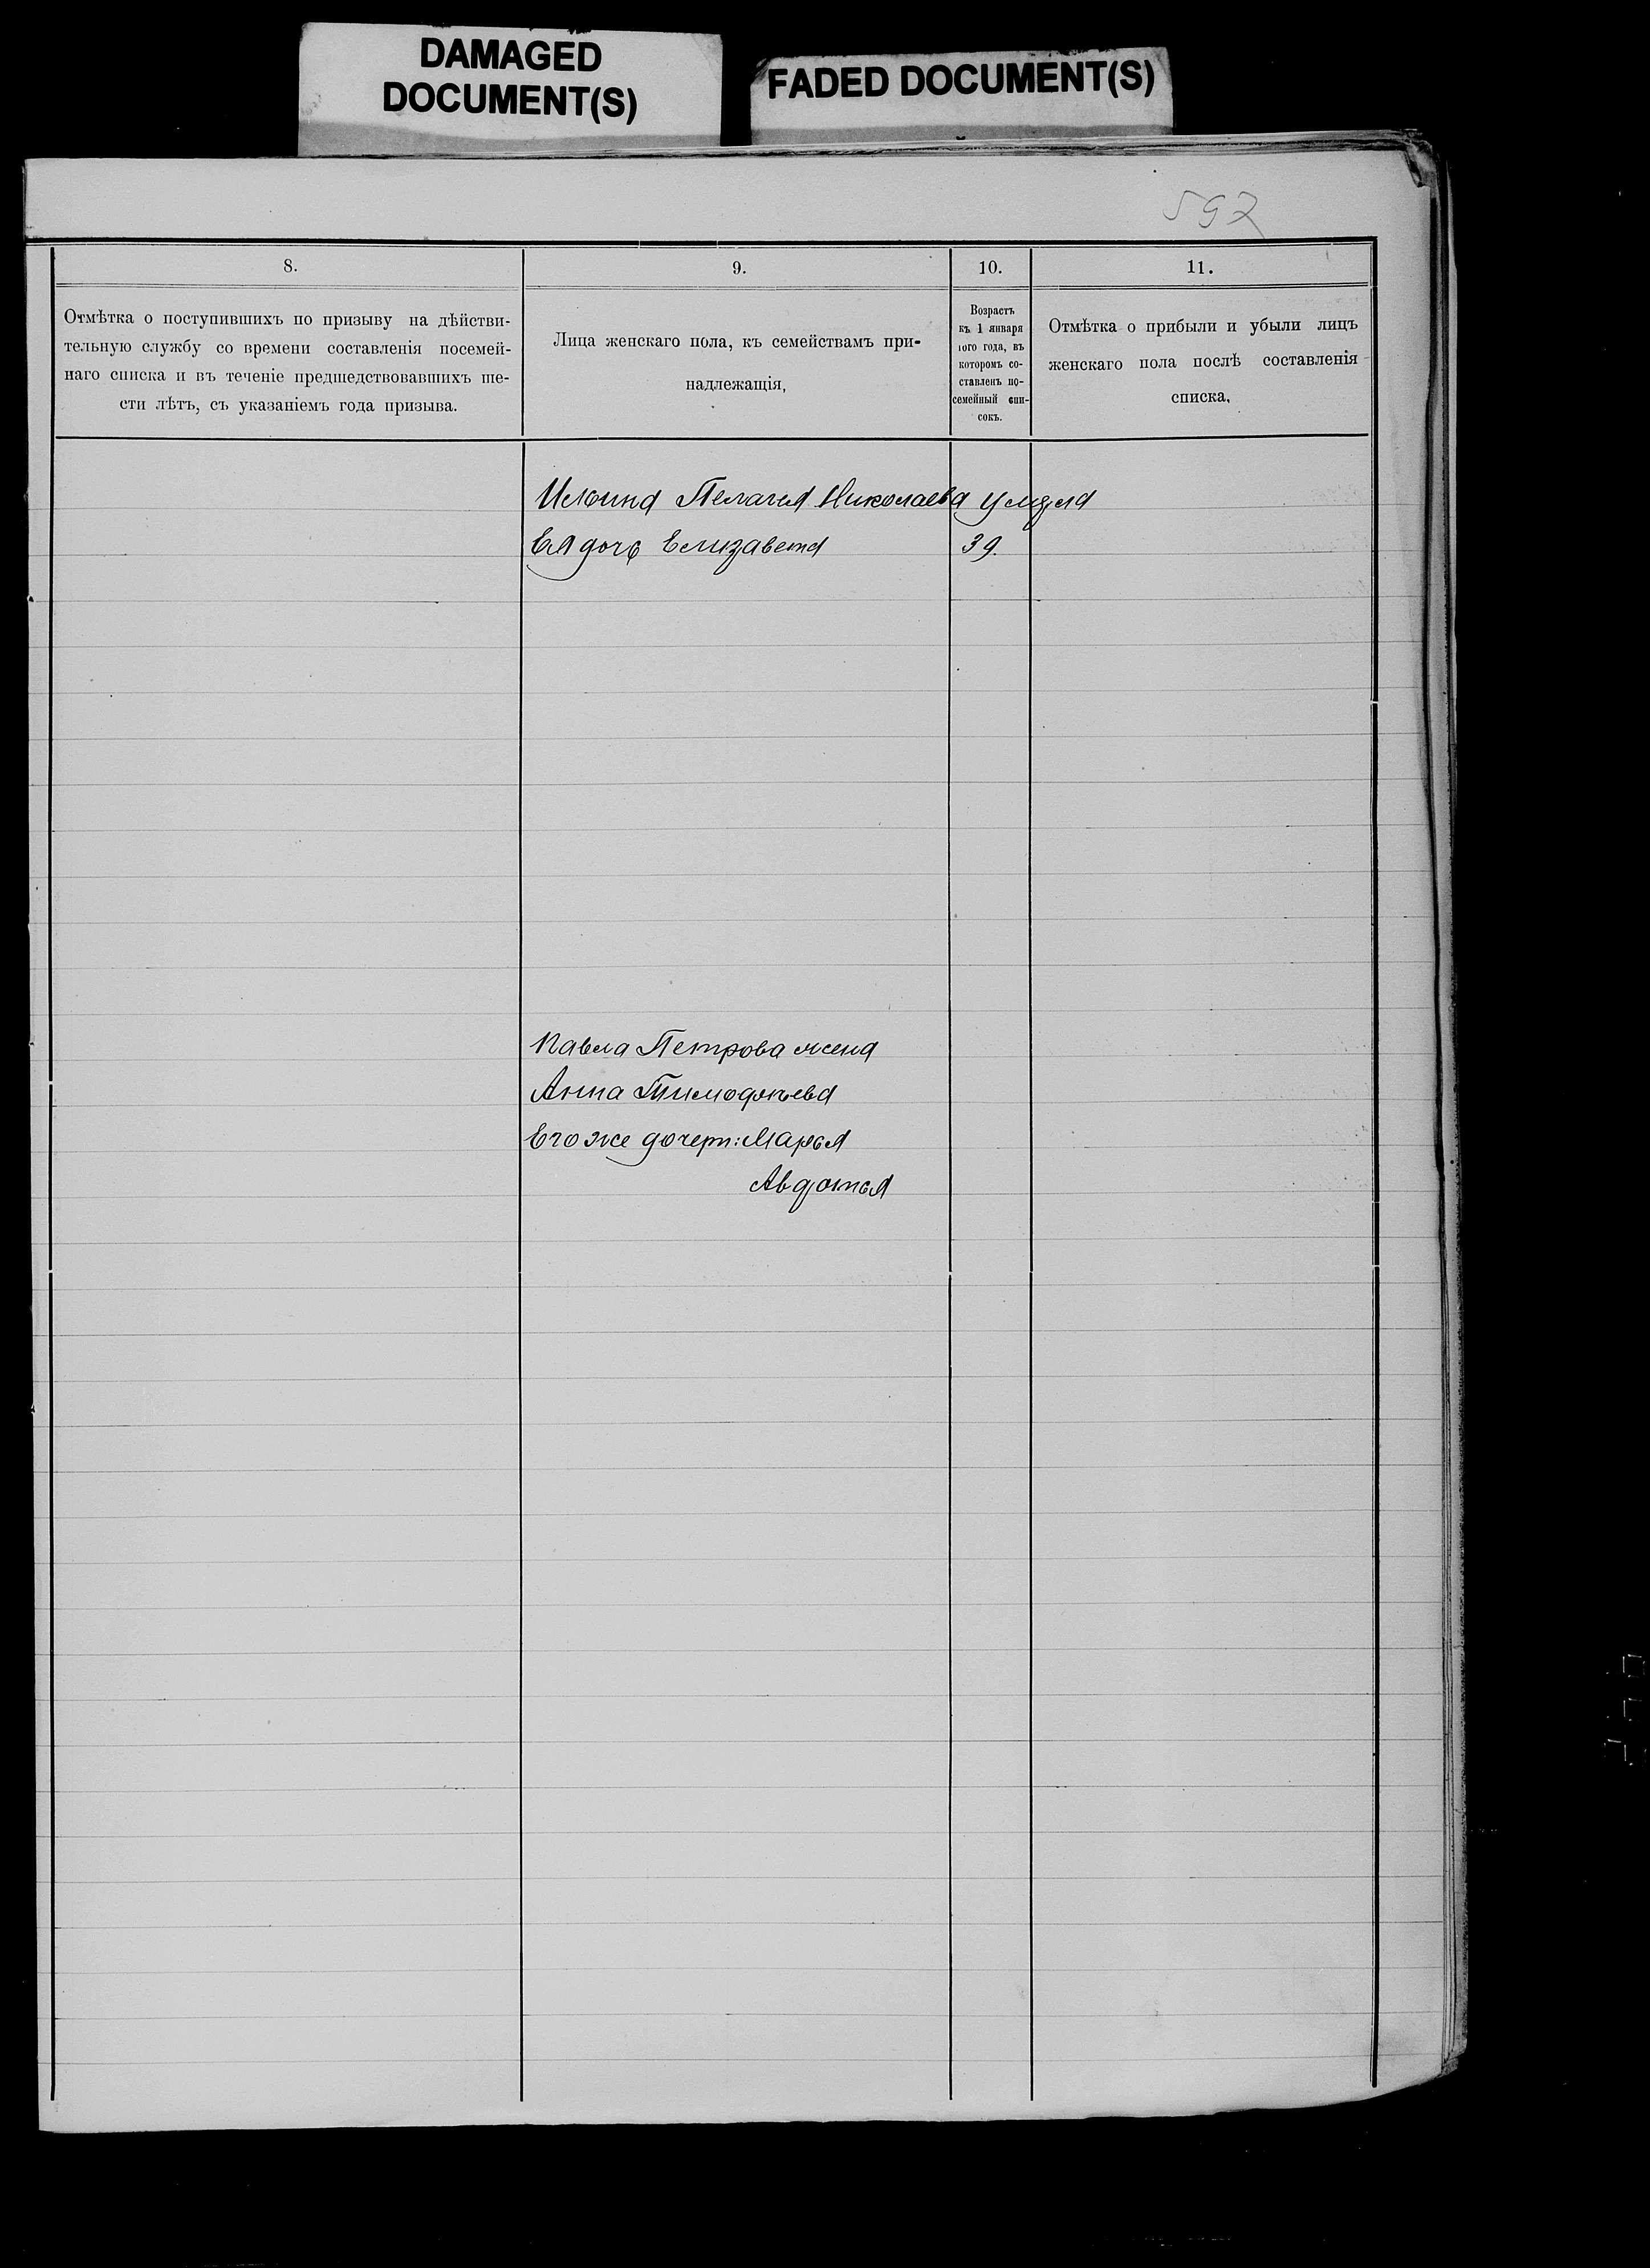 DAMAGED
DOCUMENT(S)
FADED DOCUMENT(S)
597
8.
9.
10.
11.
Отмѣтка о поступившихъ по призыву на дѣйстви-
тельную службу со времени составленія посемей-
наго списка и въ теченіе предшедствовавшихъ ше-
сти лѣтъ, съ указаніемъ года призыва.
Лица женскаго пола, къ семействамъ при-
надлежащія,
Возрастъ
къ 1 января
того года, въ
которомъ со-
ставленъ по-
семейный спи-
сокъ.
Отмѣтка о прибыли и убыли лицъ
женскаго пола послѣ составленія
списка.
Пелагея Николаева
Ея дочь Елизавета 39.
Павла Петрова жена
Анна Тимофѣева
Его же дочери: Марья
Авдотья